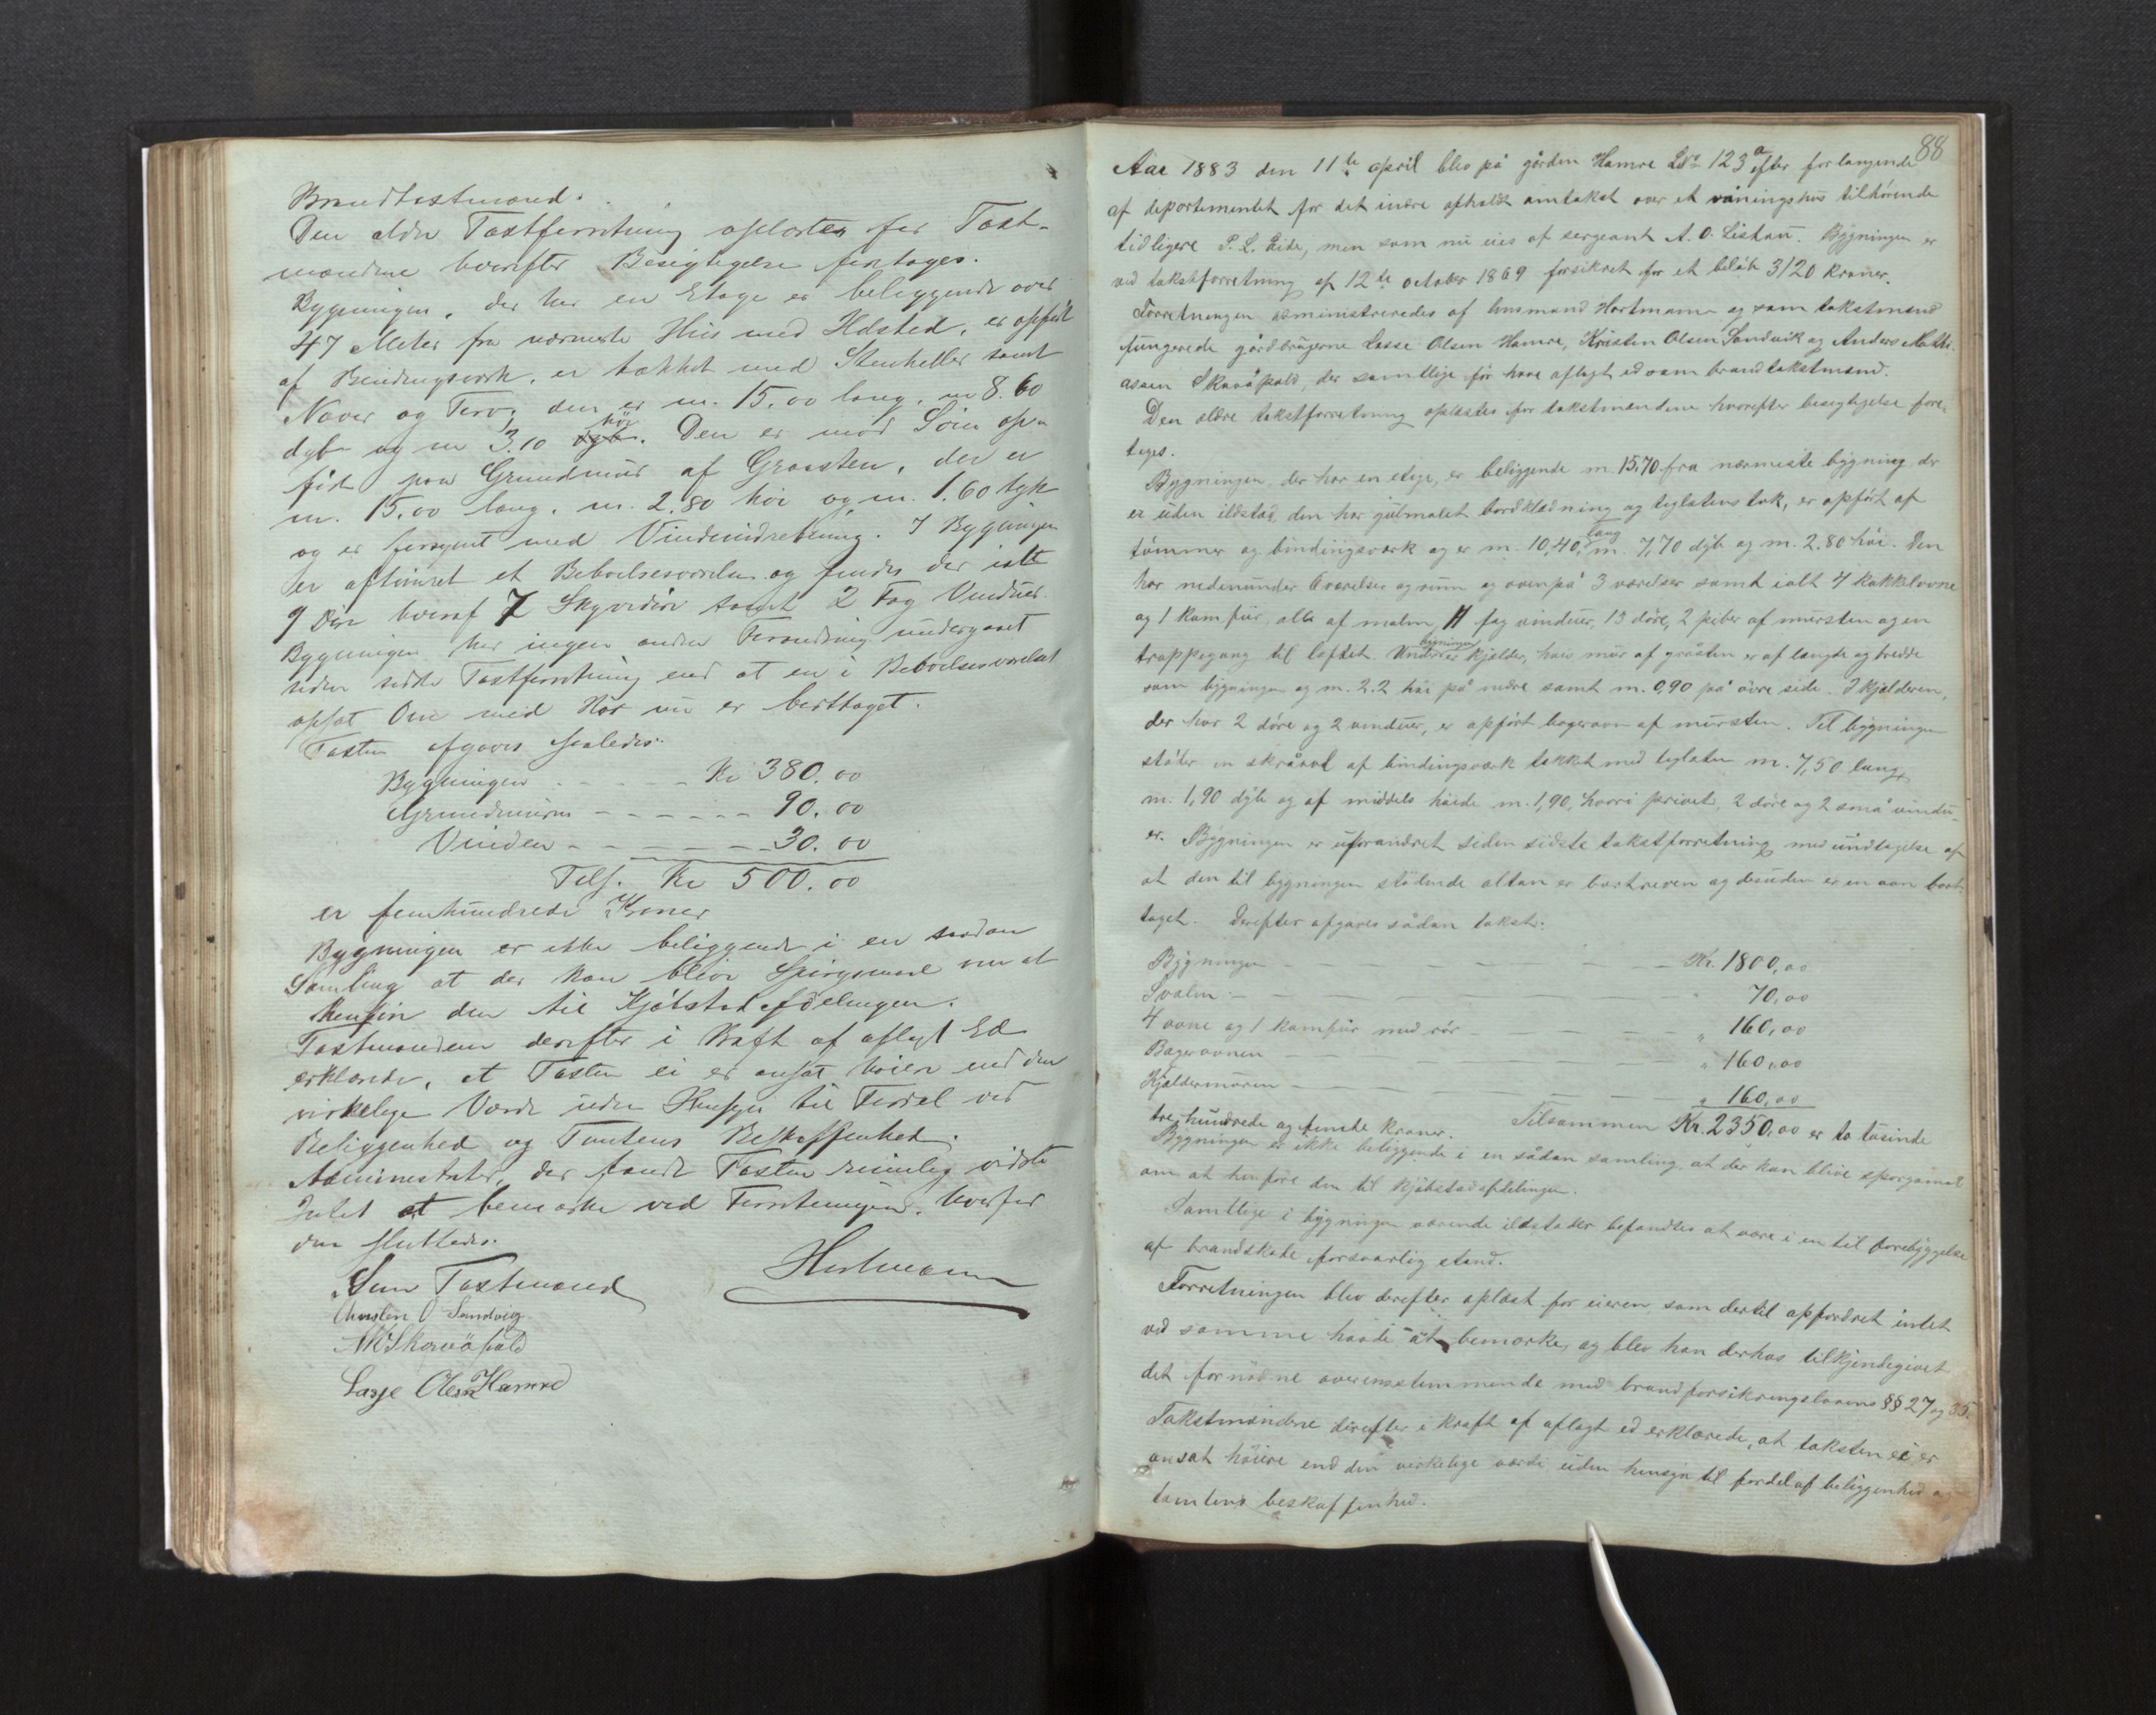 Brandtaxtmænd.
Den ældre Taxtforretning oplæstes for Taxt-
mændene hvorefter Besigtigelse foretoges.
Bygningen, der har en Etage er beliggende over
47 Meter fra nærmeste Hus med Ildsted, er opført
af Bindingsverk, er tækket med Stenheller samt
Næver og Torv, den er m. 15.00 lang, m 8.60
dyb og m 3.10 høi. Den er mod Søen op-
ført paa Grundmur af Graasten, der er
m. 15.00 lang, m. 2.80 høi og m. 1.60 tyk
og er forsynet med Vindeindretning. I Bygningen
er aftømret et Beboelsesværelse og findes der ialt
9 Døre hvoraf 7 Skyvedøre samt 2 Fag Vinduer.
Bygningen har ingen anden Forandring undergaaet
siden sidste Taxtforretning end at en i Beboelsesværelset
opsat Ovn med Rør nu er borttaget.
Taxten afgaves saaledes:
Bygningen - - - - Kr 380.00
Grundmuren - - - - - - 90.00
Vinden - - - - - - 30.00
Tils. Kr 500.00
er femhundrede Kroner
Bygningen er ikke beliggende i en saadan
Samling at der kan blive Spørgsmaal om at
henføre den til Kjøbstadafdelingen.
Taxtmændene derefter i Kraft af aflagt Ed
erklærede, at Taxten ei er ansat høiere end den
virkelige Værdi uden Hensyn til Fordel ved
Beliggenhed og Tomtens Beskaffenhed.
Administrator, der fandt Taxten rimelig vidste
Intet at bemærke ved Forretningen, hvorfor
den sluttedes.
Som Taxtmænd Hartmann
Christen O Sandvig
Lasse Olsen Hamre
88
Aar 1883 den 11te april blev på gården Hamre LNo 123a efter forlangende
af departementet for det indre afholdt omtakst over et våningshus tilhørende
tidligere P. L. Eide, men som nu eies af sergeant A. O. Liskau. Bygningen er
ved takstforretning af 12te october 1869 forsikret for et beløb 3120 kroner.
Forretningen administreredes af lensmand Hartmann og som takstmænd
fungerede gårdbrugerne Lasse Olsen Hamre, Kristen Olsen Sandvik og Anders Mathi-
assen Skaus, der samtlige før have aflagt ed som brandtakstmænd.
Den ældre takstforretning oplæstes for takstmændene hvorefter besigtigelse fore-
toges.
Bygningen, der har en etage, er beliggende m. 15,70 fra nærmeste bygning der
er uden ildsted, den har gulmalet bordklædning og teglstens tak, er opført af
tømmer og bindingsværk og er m. 10,40 lang m. 7,70 dyb og m. 2.80 høi. Den
har nedenunder 6 værelser og rum og ovenpå 3 værelser samt ialt 4 kakkelovne
og 1 komfur, alle af malm, 11 fag vinduer, 13 døre, 2 piber af mursten og en
trappegang til loftet. Under bygningen er kjælder, hvis mur af gråsten er af længde og bredde
som bygningen og m. 2.2 høi på nedre samt m. 0,90 på øvre side. I kjælderen,
der har 2 døre og 2 vinduer, er opført bagerovn af mursten. Til bygningen
støder en skråsval af bindingsværk tækket med teglsten m. 7,50 lang,
m. 1,90 dyb og af middels høide m. 1,90, hvori privet, 2 døre og 2 små vindu-
er. Bygningen er uforandret siden sidste takstforretning med undtagelse af
at den til bygningen stødende altan er bortreven og desuden er en ovn bort-
taget. Derefter afgaves sådan takst:
Bygningen - - - - - Kr. 1800,00
Svalen - - - - " 70,00
4 ovne og 1 komfur med rør - - - " 160,00
Bagerovnen - - - - " 160,00
Kjældermuren - - - - " 160,00
Tilsammen Kr. 2350,00 er to tusinde
tre hundrede og femti kroner.
Bygningen er ikke beliggende i en sådan samling, at der kan blive spørgsmål
om at henføre den til kjøbstadafdelingen.
Samtlige i bygningen værende ildsteder befandtes at være i en til forebyggelse
af brandskade forsvarlig stand.
Forretningen blev derefter oplæst for eieren, som dertil opfordret intet
ved samme havde at bemærke, og blev han derhos tilkjendegivet
det fornødne overensstemmende med brandforsikringslovens §§ 27 og 35.
Takstmændene derefter i kraft af aflagt ed erklærede, at taksten ei er
ansat høiere end den virkelige værdi uden hensyn til fordel af beliggenhed og
tomtens beskaffenhed.